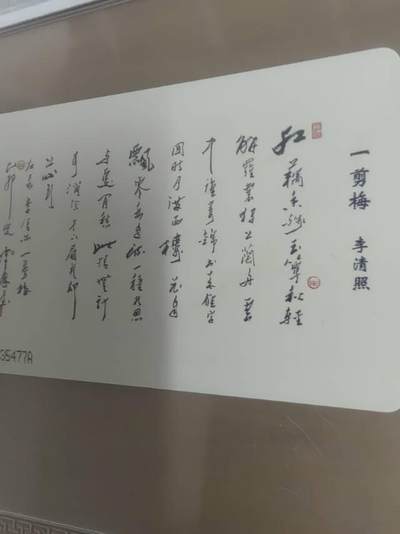 一剪梅 李清照
红藕香残玉簟秋轻
解罗裳独上兰舟云
中谁寄锦书来雁字
回时月满西楼花自
飘零水自流一种相思
两处闲愁此情无计
可消除才下眉头却
上心头
右录李清照一剪梅
35477A